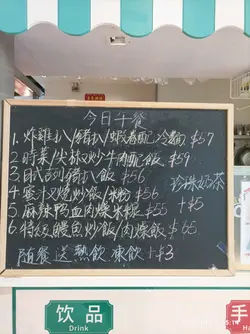 今日午餐
1. 炸雞扒/豬扒/蝦卷配冷麵 $57
2. 時菜/尖椒炒牛肉配飯 $59
3. 日式咖喱豬扒飯 $56
4. 蜜汁叉燒炒飯/米粉 $56
5. 麻辣鴨血肉燥米線 $55
6. 特式鰻魚炒飯/肉燥飯 $65
珍珠奶茶
+$5
隨餐送熱飲 凍飲+$3
饮品
Drink
手